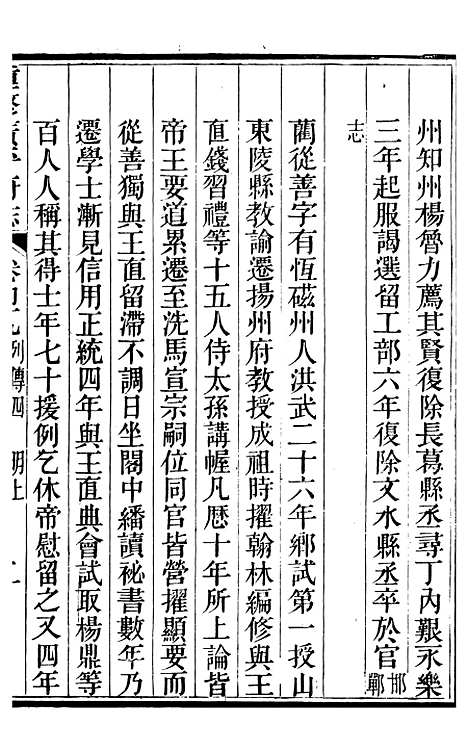 州知州楊齊力薦其賢復除長葛縣丞尋丁內艱永樂
三年起服謁選留工部六年復除文水縣丞卒於官邯鄲
志
藺從善字有恆磁州人洪武二十六年鄉試第一授山
東陵縣教諭遷揚州府教授成祖時擢翰林編修與王
直錢習禮等十五人侍太孫講幄凡歷十年所上論皆
帝王要道累遷至洗馬宣宗嗣位同官皆營擢顯要而
從善獨與王直留滯不調日坐閣中繙讀祕書數年乃
遷學士漸見信用正統四年與王直典會試取楊鼎等
百人人稱其得士年七十援例乞休帝慰留之又四年
重修廣平府志 卷四九 列傳四 明上